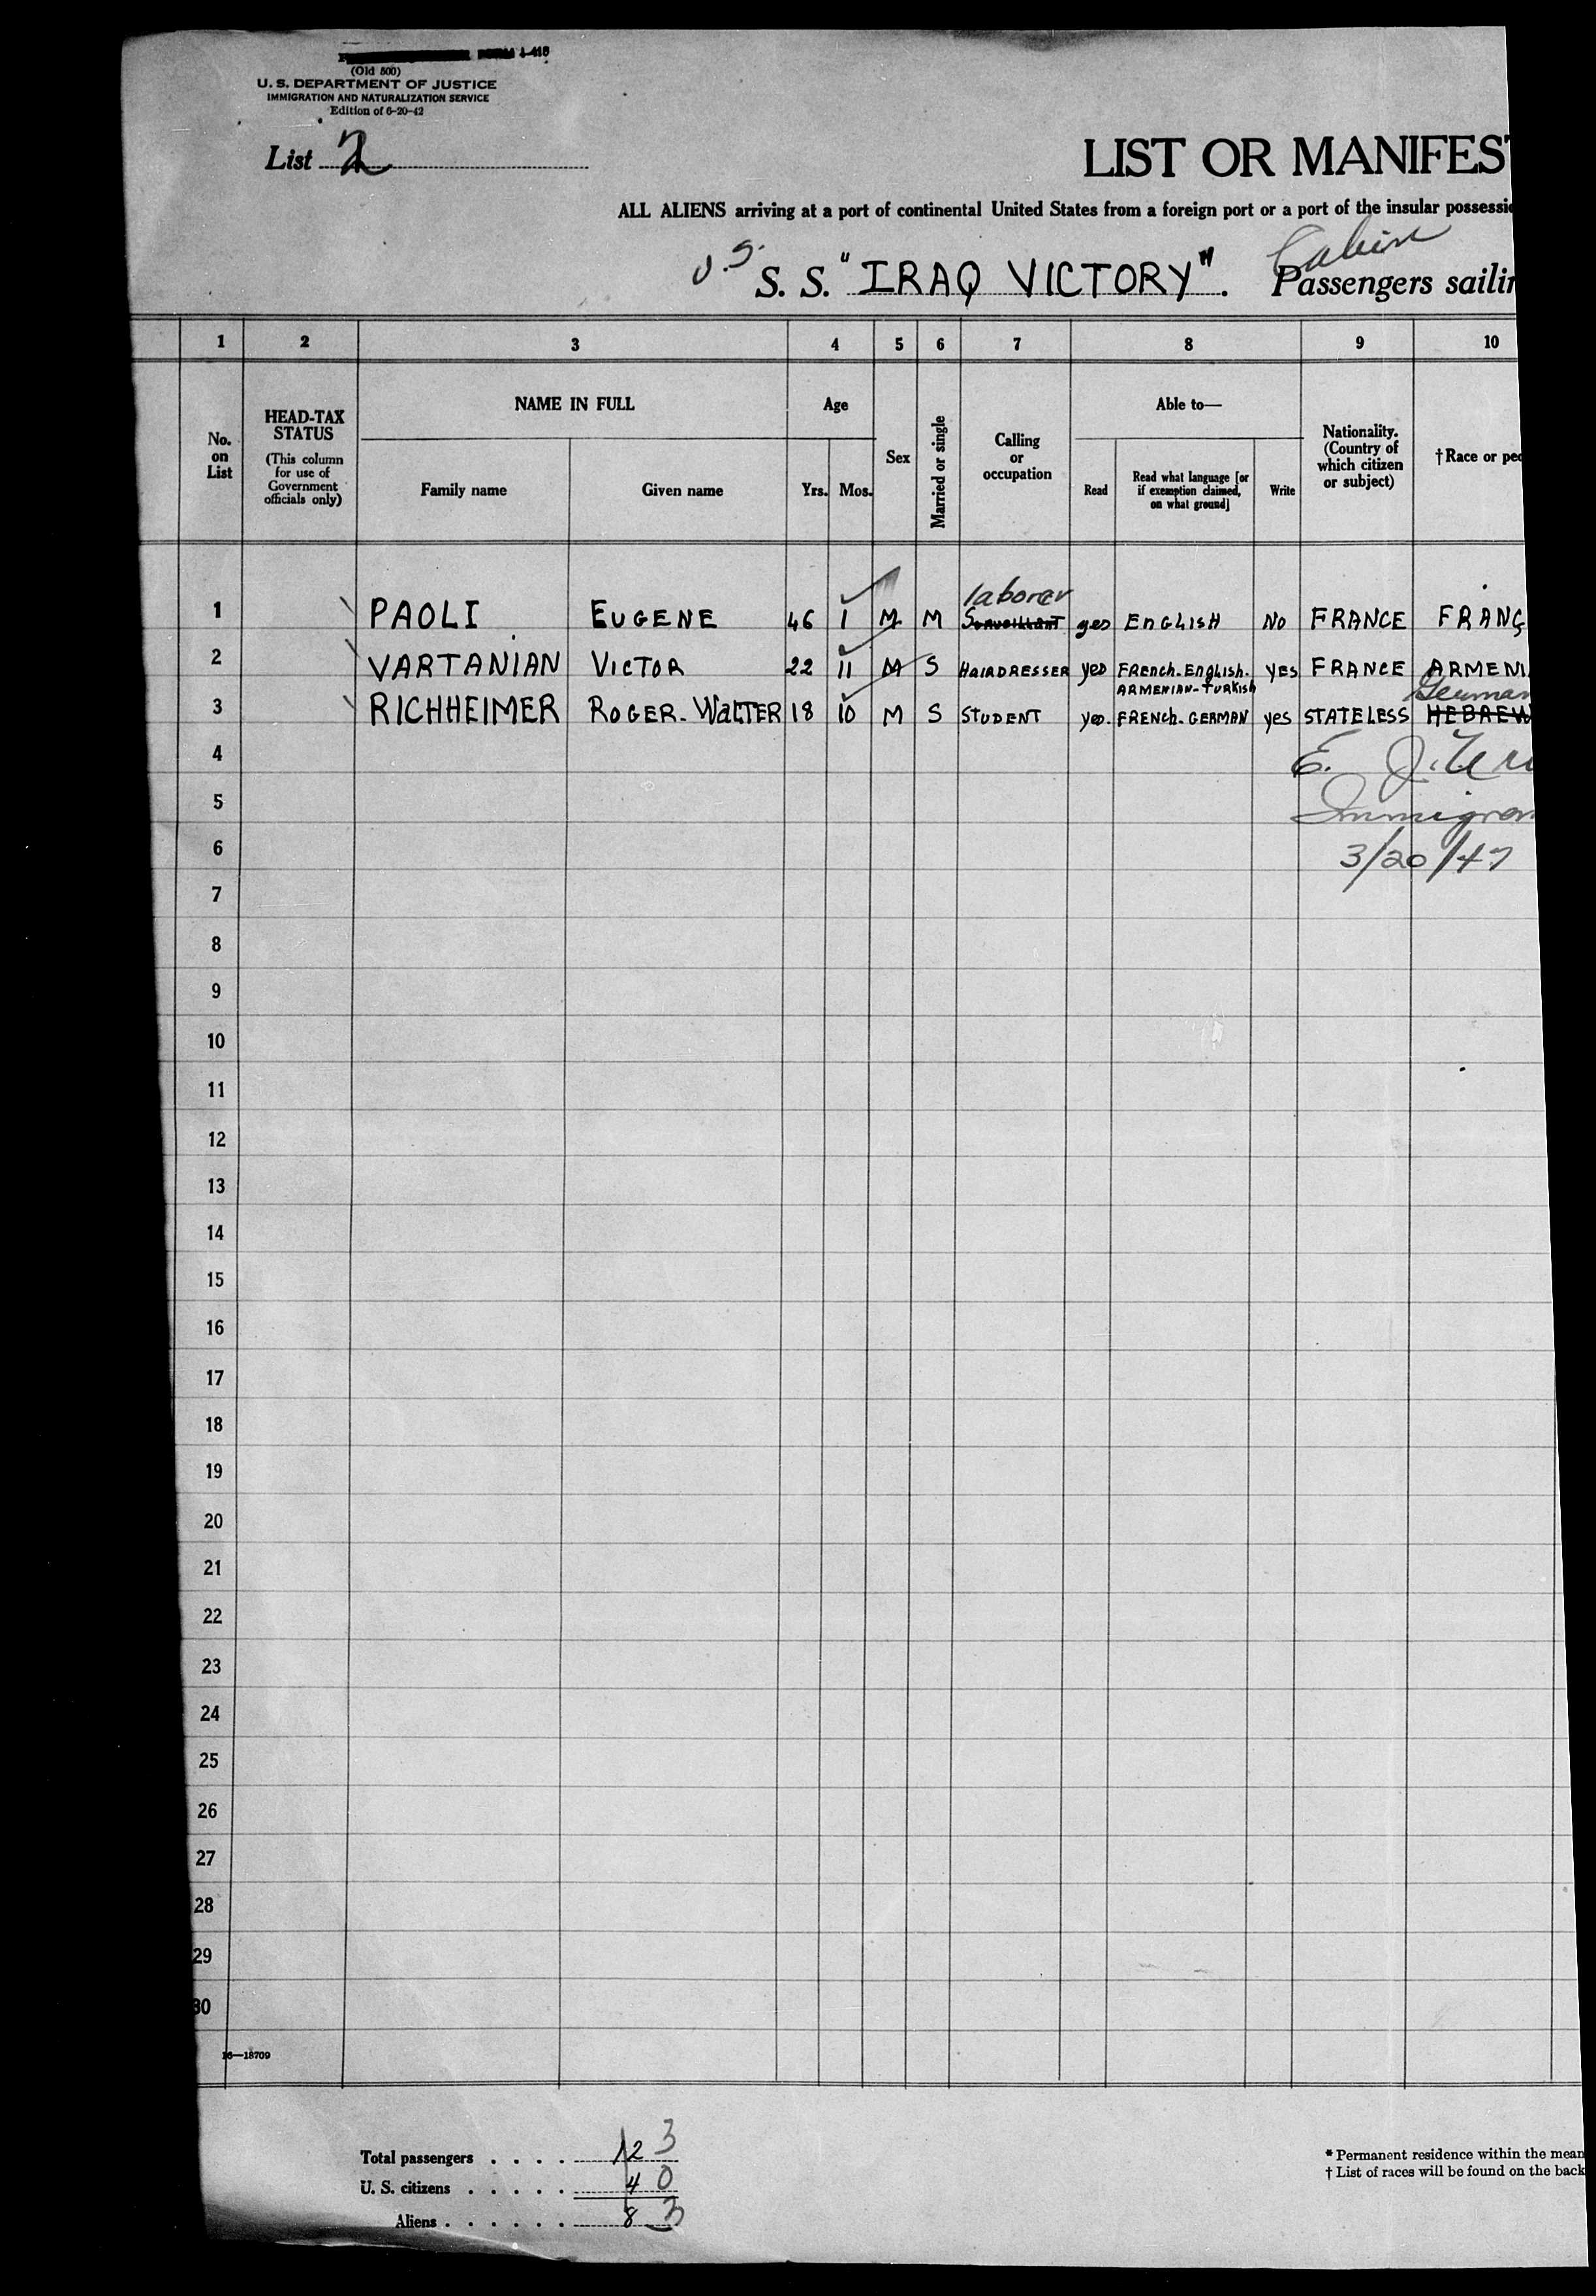 FORM I-415
(Old 500)
U. S. DEPARTMENT OF JUSTICE
IMMIGRATION AND NATURALIZATION SERVICE
Edition of 6-20-42
List 2
LIST OR MANIFES
ALL ALIENS arriving at a port of continental United States from a foreign port or a port of the insular possessi
U.S. S. S. "IRAQ VICTORY". Cabin Passengers sailin
1 2 3 4 5 6 7 8 9 10
No. on List
HEAD-TAX STATUS
(This column for use of Government officials only)
NAME IN FULL
Family name Given name
Age
Yrs. Mos.
Sex
Married or single
Calling or occupation
Able to—
Read
Read what language [or if exemption claimed, on what ground]
Write
Nationality. (Country of which citizen or subject)
†Race or peo
laborer
1 PAOLI EUGENE 46 1 M M SURVEILLANT yes ENGLISH NO FRANCE FRANÇ
2 VARTANIAN VICTOR 22 11 M S HAIRDRESSER yes FRENCH-ENGLISH. YES FRANCE ARMENI
ARMENIAN-TURKISH German
3 RICHHEIMER ROGER-WALTER 18 10 M S STUDENT yes. FRENCH-GERMAN yes STATELESS HEBREW
4 E. J.
5 Immigran
6 3/20/47
7
8
9
10
11
12
13
14
15
16
17
18
19
20
21
22
23
24
25
26
27
28
29
30
16—18709
Total passengers . . . . 12 3
U. S. citizens . . . . . 4 0
Aliens . . . . . . 8 3
* Permanent residence within the mean
† List of races will be found on the back